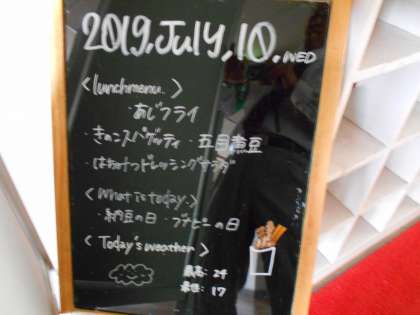 2019.July,10.WED
<lunchmenu.>
・あじフライ
・きのこスパゲッティ ・五目煮豆
・はちみつドレッシングサラダ
<What is today.>
・納豆の日 ・ブナピーの日
<Today's weather>
最高: 24
最低: 17